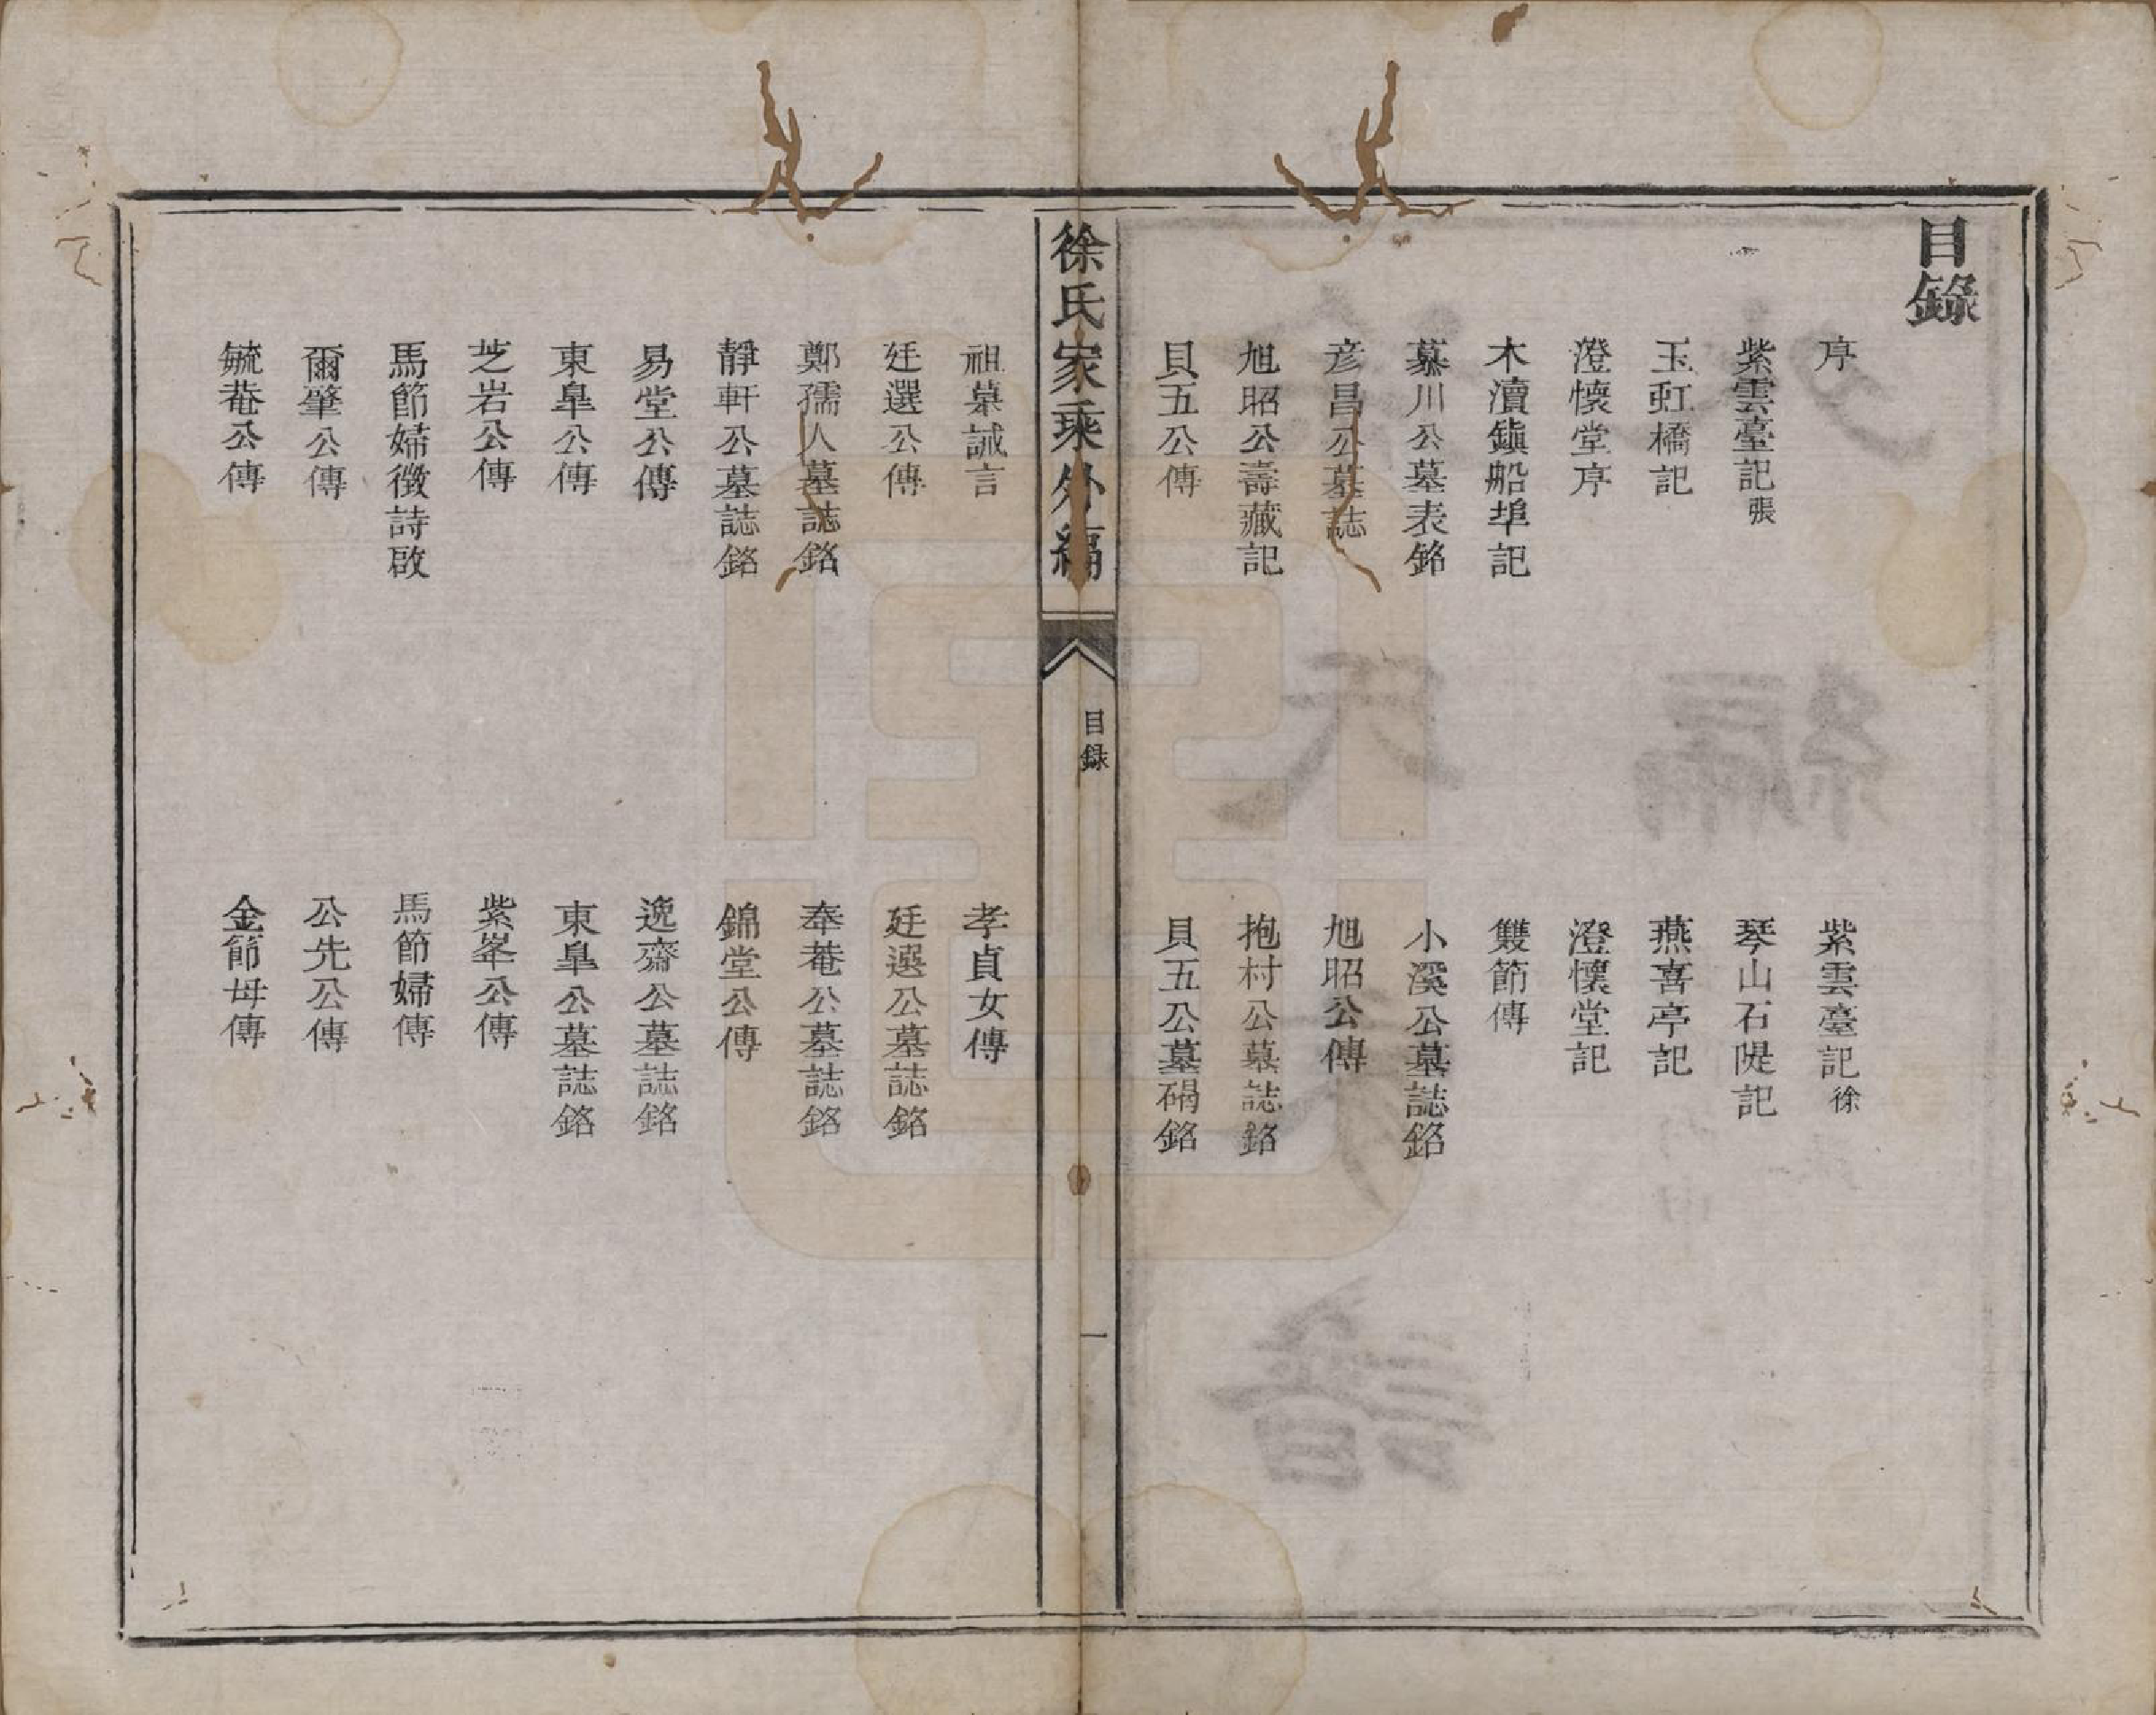 目錄
序
紫雲臺記徐
紫雲臺記張
琴山石隄記
玉虹橋記
燕喜亭記
澄懷堂序
澄懷堂記
木瀆鎮船埠記
雙節傳
慕川公墓表銘
小溪公墓誌銘
彥昌公墓誌
旭昭公傳
旭昭公壽藏記
抱村公墓誌銘
貝五公傳
貝五公墓碣銘
徐氏家乘外編
目録
一
祖墓誡言
孝貞女傳
廷選公傳
廷選公墓誌銘
鄭孺人墓誌銘
奉菴公墓誌銘
靜軒公墓誌銘
錦堂公傳
易堂公傳
逸齋公墓誌銘
東臯公傳
東臯公墓誌銘
芝岩公傳
紫峯公傳
馬節婦徵詩啟
馬節婦傳
爾肇公傳
公先公傳
毓菴公傳
金節母傳